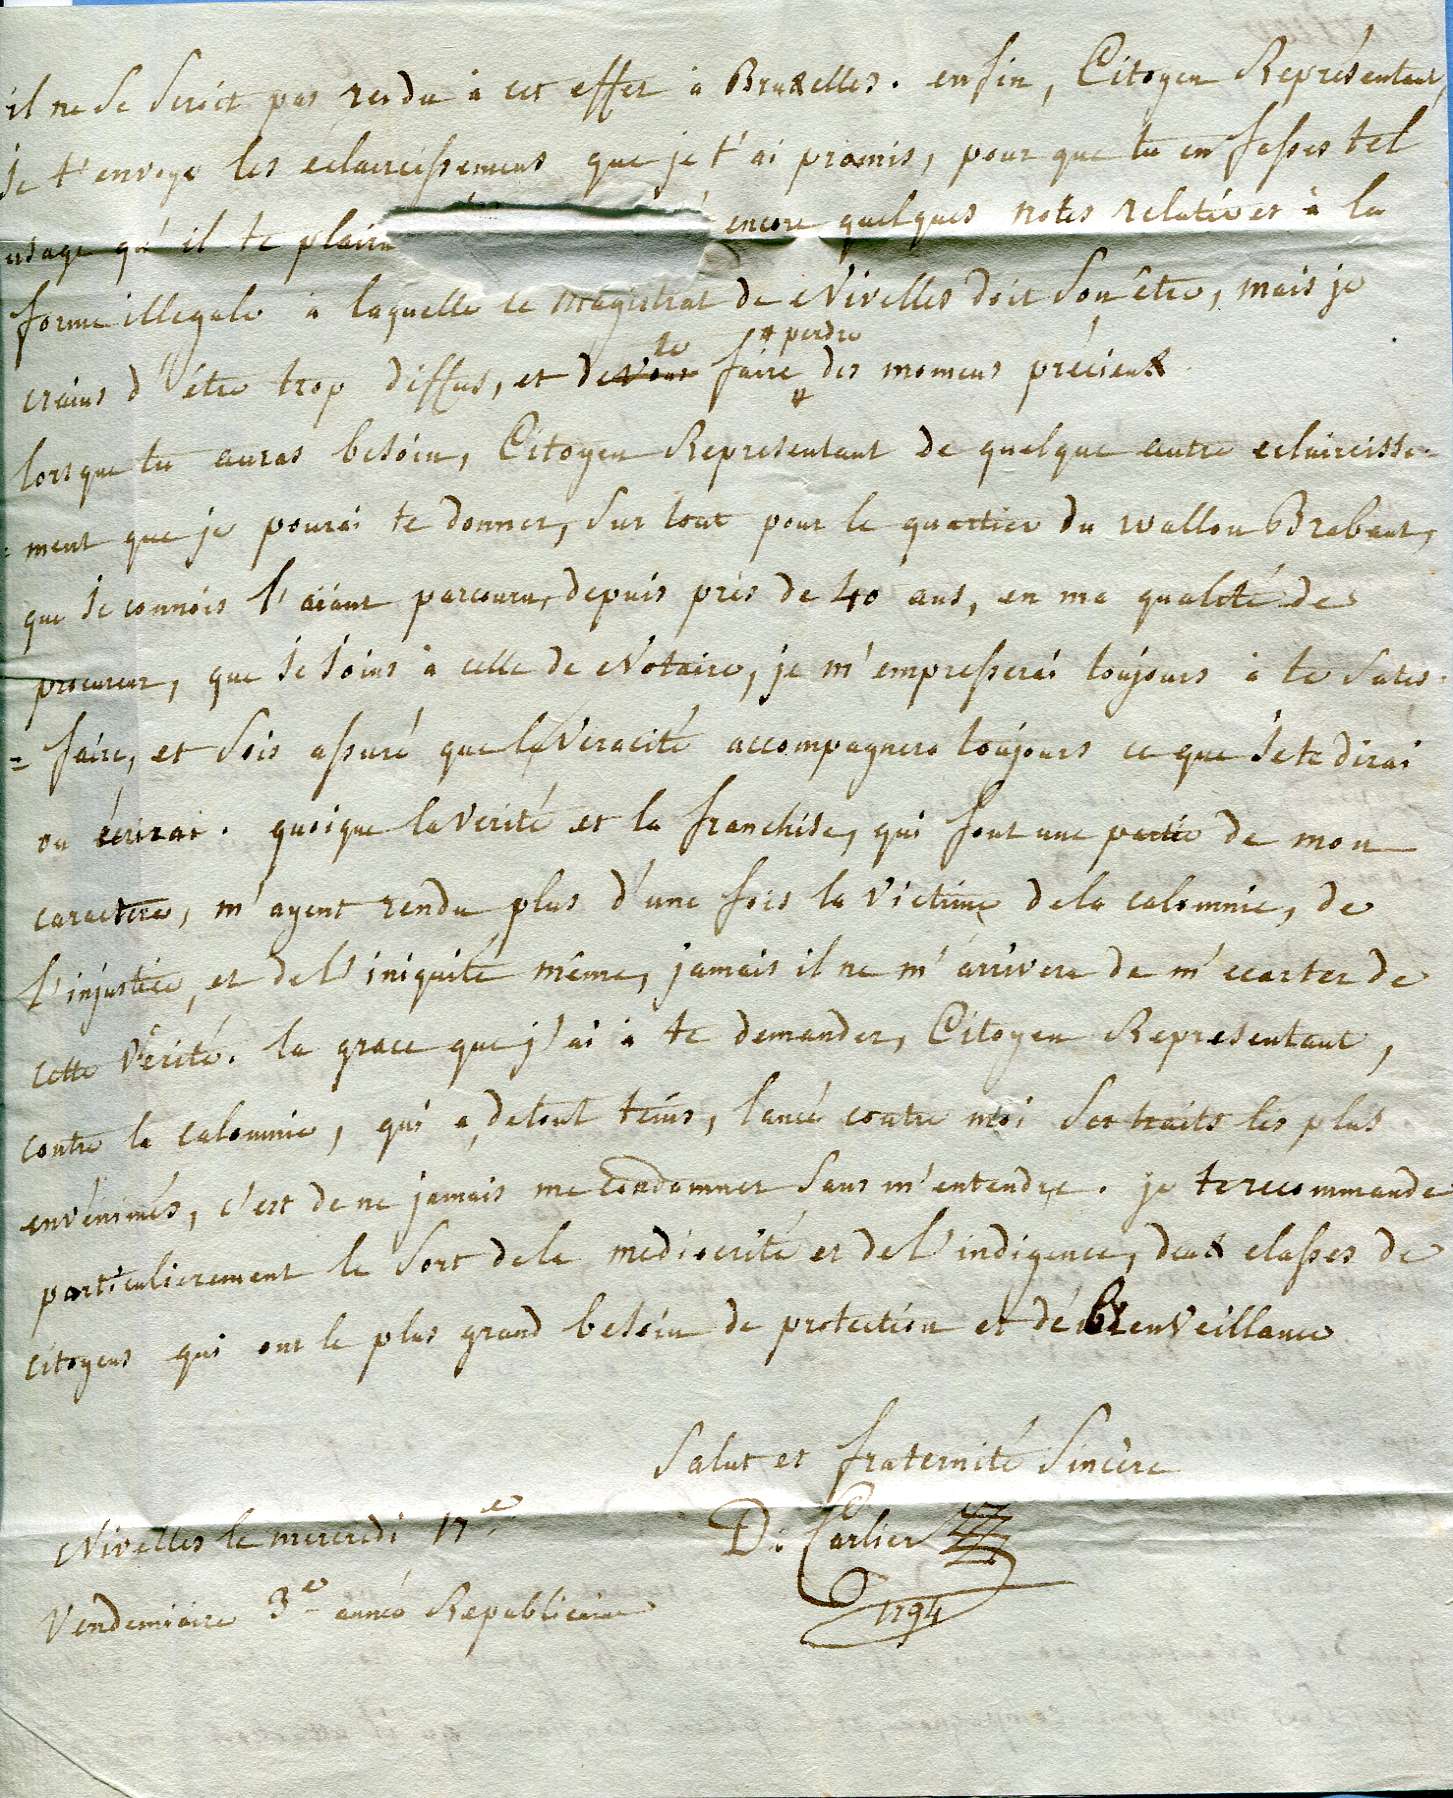 il ne se seroit pas rendu à cet effet à Bruxelles. enfin, Citoyen Représentant,
Je t'envoye les eclaircissemens que je t'ai promis, pour que tu en fasses tel
usage qu'il te plaira encore quelques notes relatives à la
forme illegale à laquelle le magistrat de Nivelles doit son être, mais je
te # perdre
crains d'être trop diffus, et de vous faire # des momens précieux
lorsque tu auras besoin, Citoyen Representant de quelque autre eclaircisse-
=ment que je pourai te donner, sur tout pour le quartier du wallon Brabant,
que Je connois l'aiant parcouru, depuis près de 40 ans, en ma qualité de
procureur, que Je Joins à celle de Notaire, je m'empresserai toujours à te satis-
=faire, et sois assuré que la Veracité accompagnera toujours ce que Je te dirai
ou écrirai. quoique la Verité et la franchise, qui font une partie de mon
caractere, m'ayent rendu plus d'une fois la Victime de la calomnie, de
l'injustice, et de l'iniquité même, jamais il ne m'arrivera de m'ecarter de
cette Vérité. la grace que j'ai à te demander, Citoyen Representant,
contre la calomnie, qui a, de tout tems, lancé contre moi ses traits les plus
envénimés, c'est de ne jamais me condamner sans m'entendre. je te recommande
particulierement le sort de la mediocrité et de l'indigence, deux classes de
citoyens qui ont le plus grand besoin de protection et de Bienveillance
Salut et fraternité Sincère
Nivelles le mercredi 17e
D: Carlier
Vendemiaire 3e année Republicaine
1794